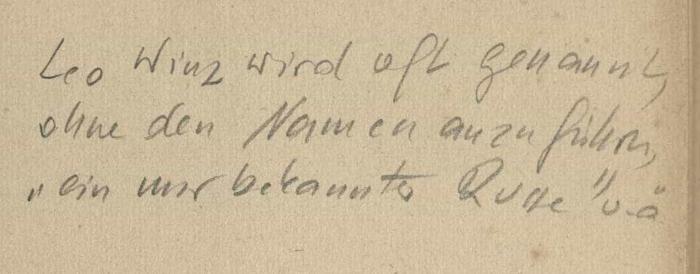 Leo Winz wird oft genannt,
ohne den Namen anzuführen,
"ein mir bekannter Russe" u.ä